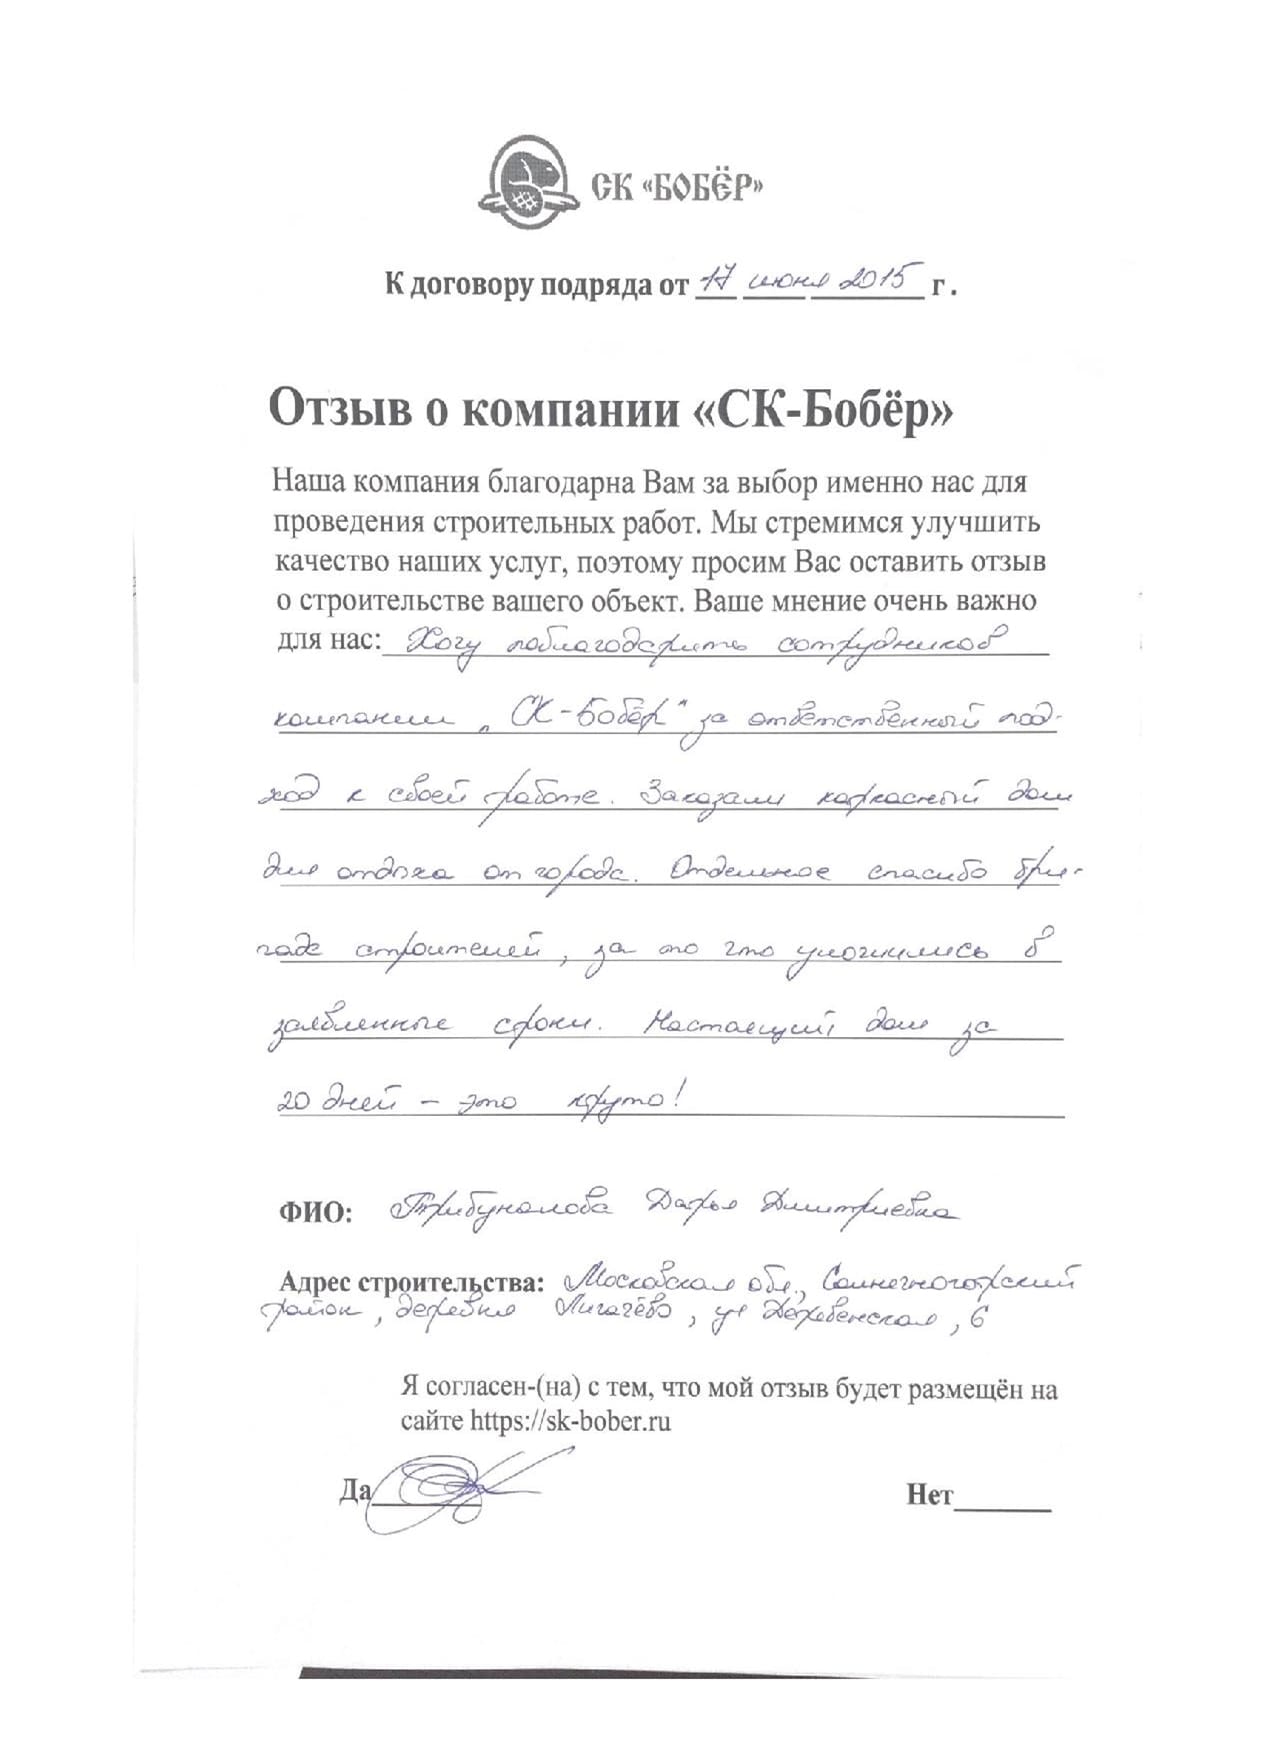 СК «БОБЁР»
К договору подряда от 17 июня 2015 г .
Отзыв о компании «СК-Бобёр»
Наша компания благодарна Вам за выбор именно нас для
проведения строительных работ. Мы стремимся улучшить
качество наших услуг, поэтому просим Вас оставить отзыв
о строительстве вашего объект. Ваше мнение очень важно
для нас: Хочу поблагодарить сотрудников
компании „СК-Бобёр“ за ответственный под-
ход к своей работе. Заказали каркасный дом
для отдыха от города. Отдельное спасибо бри-
гаде строителей, за то что уложились в
заявленные сроки. Настоящий дом за
20 дней – это круто!
ФИО: Трибуналова Дарья Дмитриевна
Адрес строительства: Московская обл., Солнечногорский
район, деревня Лигачёво, ул Деревенская, 6
Я согласен-(на) с тем, что мой отзыв будет размещён на
сайте https://sk-bober.ru
Да Нет